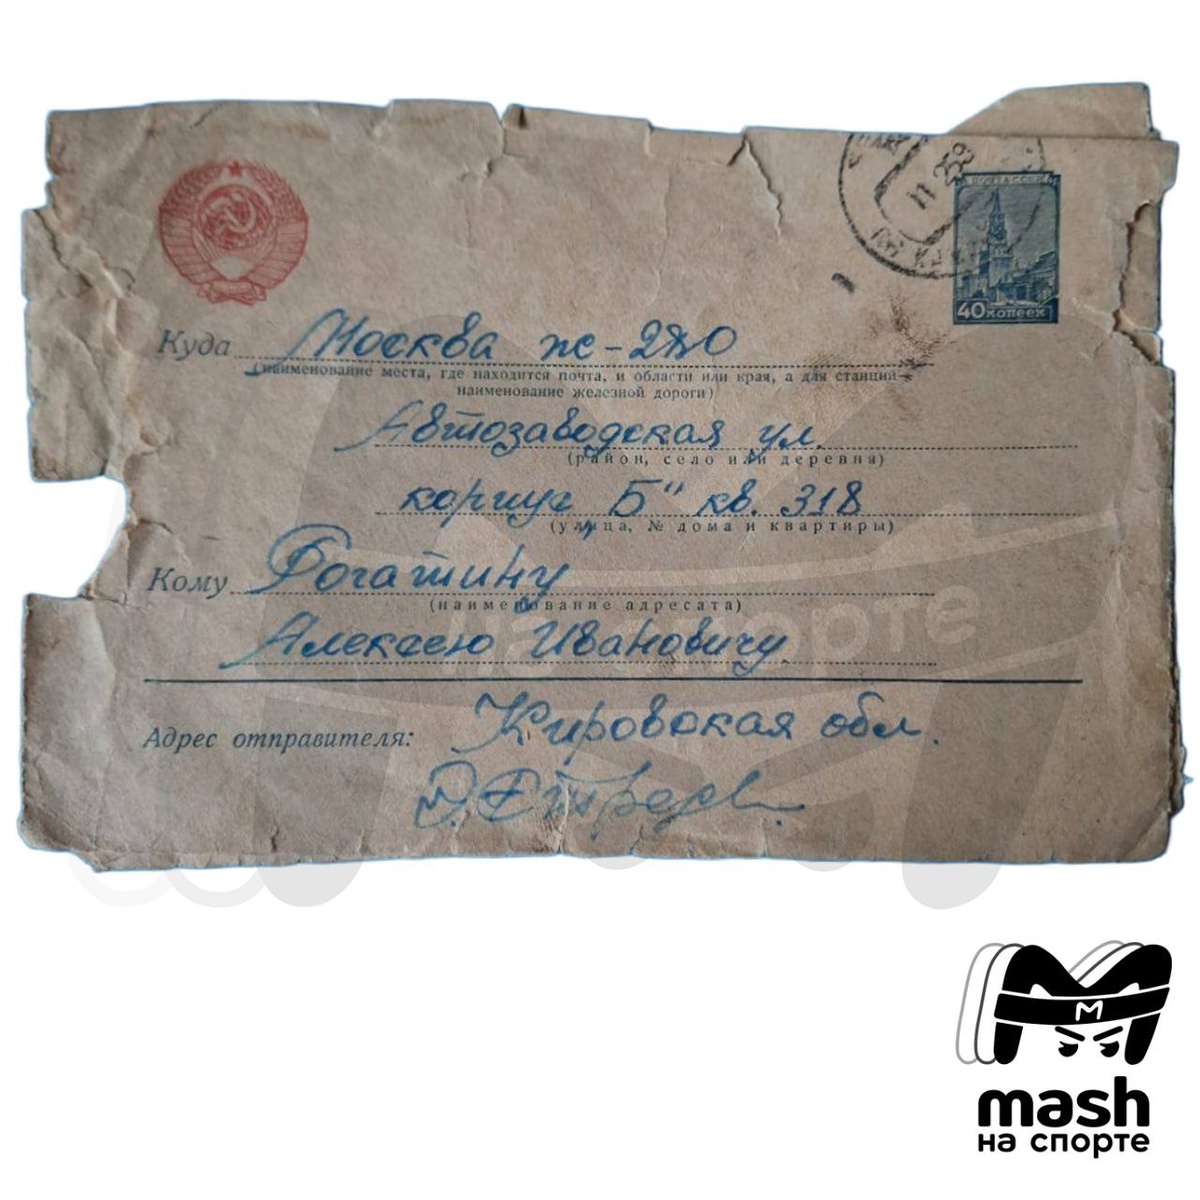 ПОЧТА СССР
11 259
40 копеек
Куда Москва ж-280
(наименование места, где находится почта, и области или края, а для станций
наименование железной дороги)
Автозаводская ул.
(район, село или деревня)
корпус „Б" кв. 318
(улица, № дома и квартиры)
Кому Рогатину
(наименование адресата)
Алексею Ивановичу
Адрес отправителя: Кировская обл.
на спорте
М
mash
на спорте